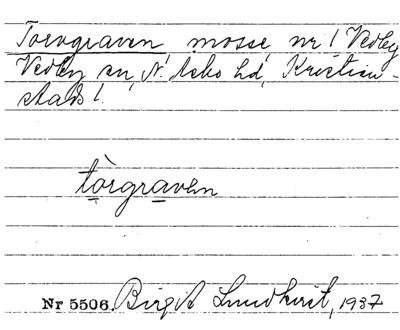 Torvgraven mosse nr 1 Vedby
Vedby sn, N. Åsbo hd, Kristian-
stads l.
tòrgraven
Nr 5506. Birgit Lundkvist, 1937